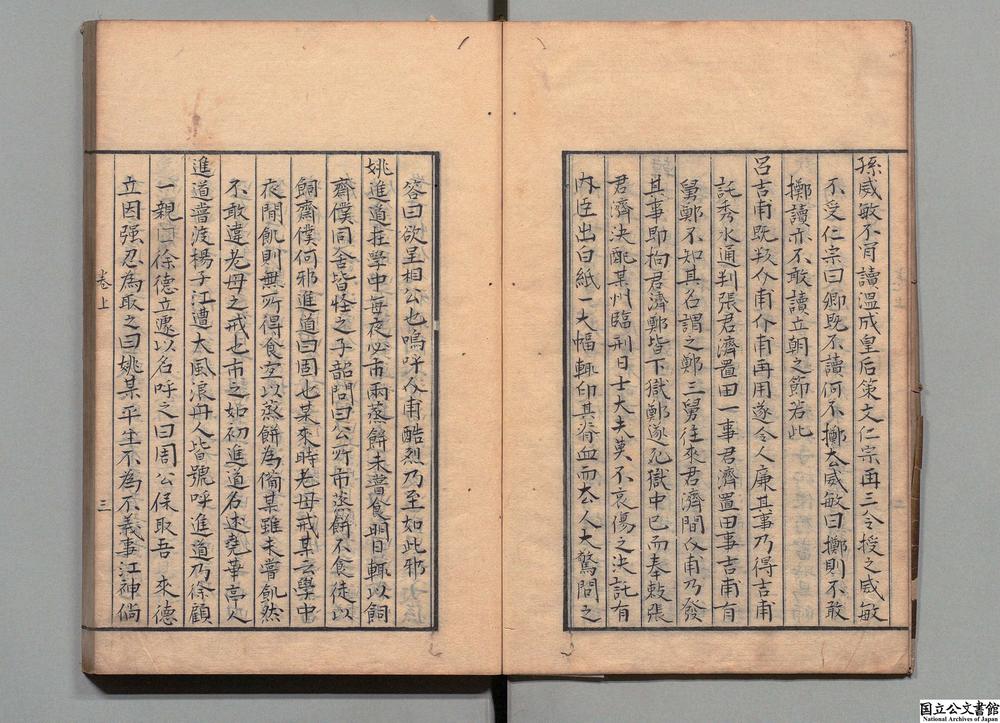 孫威敏不肯讀溫成皇后策文仁宗再三令授之威敏
不受仁宗曰卿既不讀何不擲去威敏曰擲則不敢
擲讀亦不敢讀立朝之節若此
呂吉甫既叛介甫介甫再用遂令人廉其事乃得吉甫
託秀水通判張君濟置田一事君濟置田事吉甫有
舅鄭不知其名謂之鄭三舅往來君濟間介甫乃發
其事即拘君濟鄭皆下獄鄭遂死獄中已而奉敕張
君濟決配某州臨刑日士大夫莫不哀傷之決訖有
內臣出白紙一大幅輒印其脊血而去人大驚問之
答曰欲呈相公也嗚呼介甫酷烈乃至如此邪
姚進道在學中每夜必市兩蒸餅未嘗食明日輒以飼
齋僕同舍皆怪之子韶問曰公所市蒸餅不食徒以
飼齋僕何邪進道曰固也某來時老母戒某云學中
夜間飢則無所得食宜以蒸餅為備某雖未嘗飢然
不敢違老母之戒也市之如初進道名述堯華亭人
進道嘗渡楊子江遭大風浪舟人皆號呼進道乃條顧
一親徐德立遽以名呼之曰周公保取吾 來德
立因强忍為取之曰姚某平生不為不義事江神倘
卷上
三
国立公文書館
National Archives of Japan